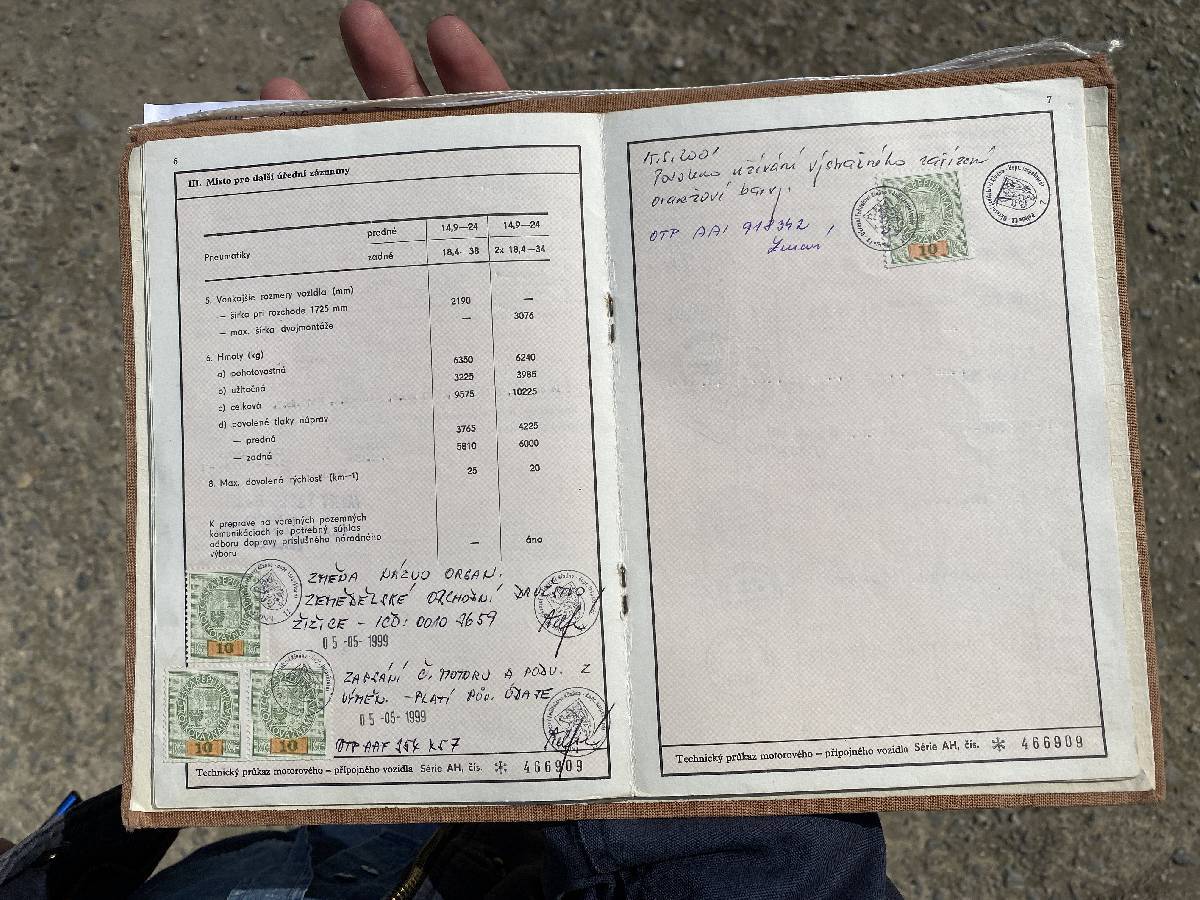 6
III. Místo pro další úřední záznamy
Pneumatiky predné 14,9—24 14,9—24
zadné 18,4- 38 2x 18,4—34
5. Vonkajšie rozmery vozidla (mm)
— šírka pri rozchode 1725 mm 2190 —
— max. šírka dvojmontáže — 3076
6. Hmoty (kg)
a) pohotovostná 6350 6240
b) užitočná 3225 3985
c) celková 9575 10225
d) povolené tlaky náprav
— predná 3765 4225
— zadná 5810 6000
8. Max. dovolená rýchlosť (km—1) 25 20
K preprave na verejných pozemných
komunikáciach je potrebný súhlas
odboru dopravy príslušného národného
výboru — áno
ZMĚNA NÁZVU ORGAN.
ZEMĚDĚLSKÉ OBCHODNÍ DRUŽSTVO
ŽIŽICE - IČO: 0010 7659
05 -05- 1999
ZAPSÁNÍ Č. MOTORU A PODV. Z
VÝMĚN. - PLATÍ PŮV. ÚDAJE
05 -05- 1999
OTP AAF
10
10
10
Technický průkaz motorového – přípojného vozidla Série AH, čís. * 466909
7
15.5.2001
Povoleno užívání výstražného zařízení
oranžové barvy.
OTP AAI 918342
10
Technický průkaz motorového – přípojného vozidla Série AH, čís. * 466909